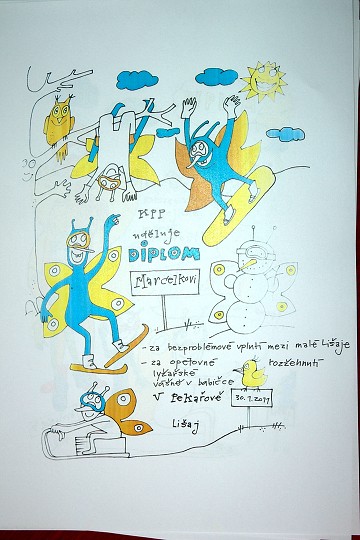 KPP
uděluje
DIPLOM
Marcelkovi
- za bezproblémové vplutí mezi malé lišaje
- za opětovné rozžehnutí
lyžařské
vášně v babičce
V Pekařově
30.1.2011
Lišaj